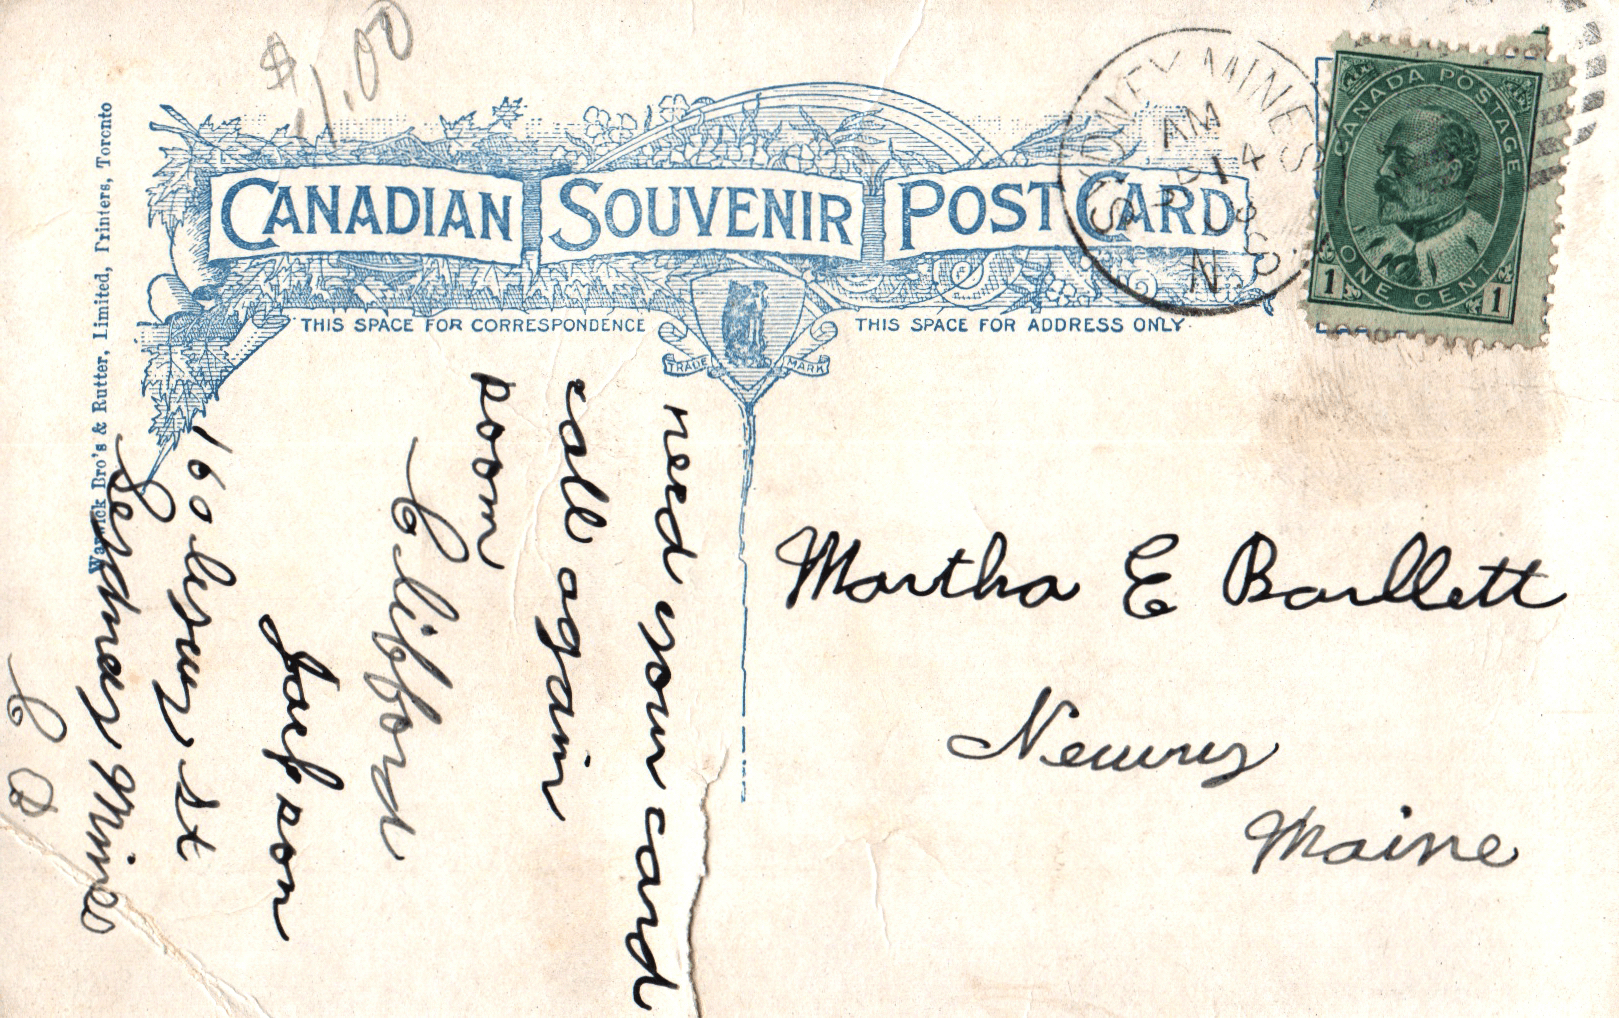 $1.00
CANADIAN SOUVENIR POST CARD
THIS SPACE FOR CORRESPONDENCE
THIS SPACE FOR ADDRESS ONLY
TRADE MARK
Warwick Bro's & Rutter, Limited, Printers, Toronto
SYDNEY MINES
AM
14
N.S.
CANADA POSTAGE
ONE CENT
1 1
need your card
call again
soon
Clifford
Jackson
160 St
Sydney Mines
C B
Martha E Bartlett
Newry
Maine